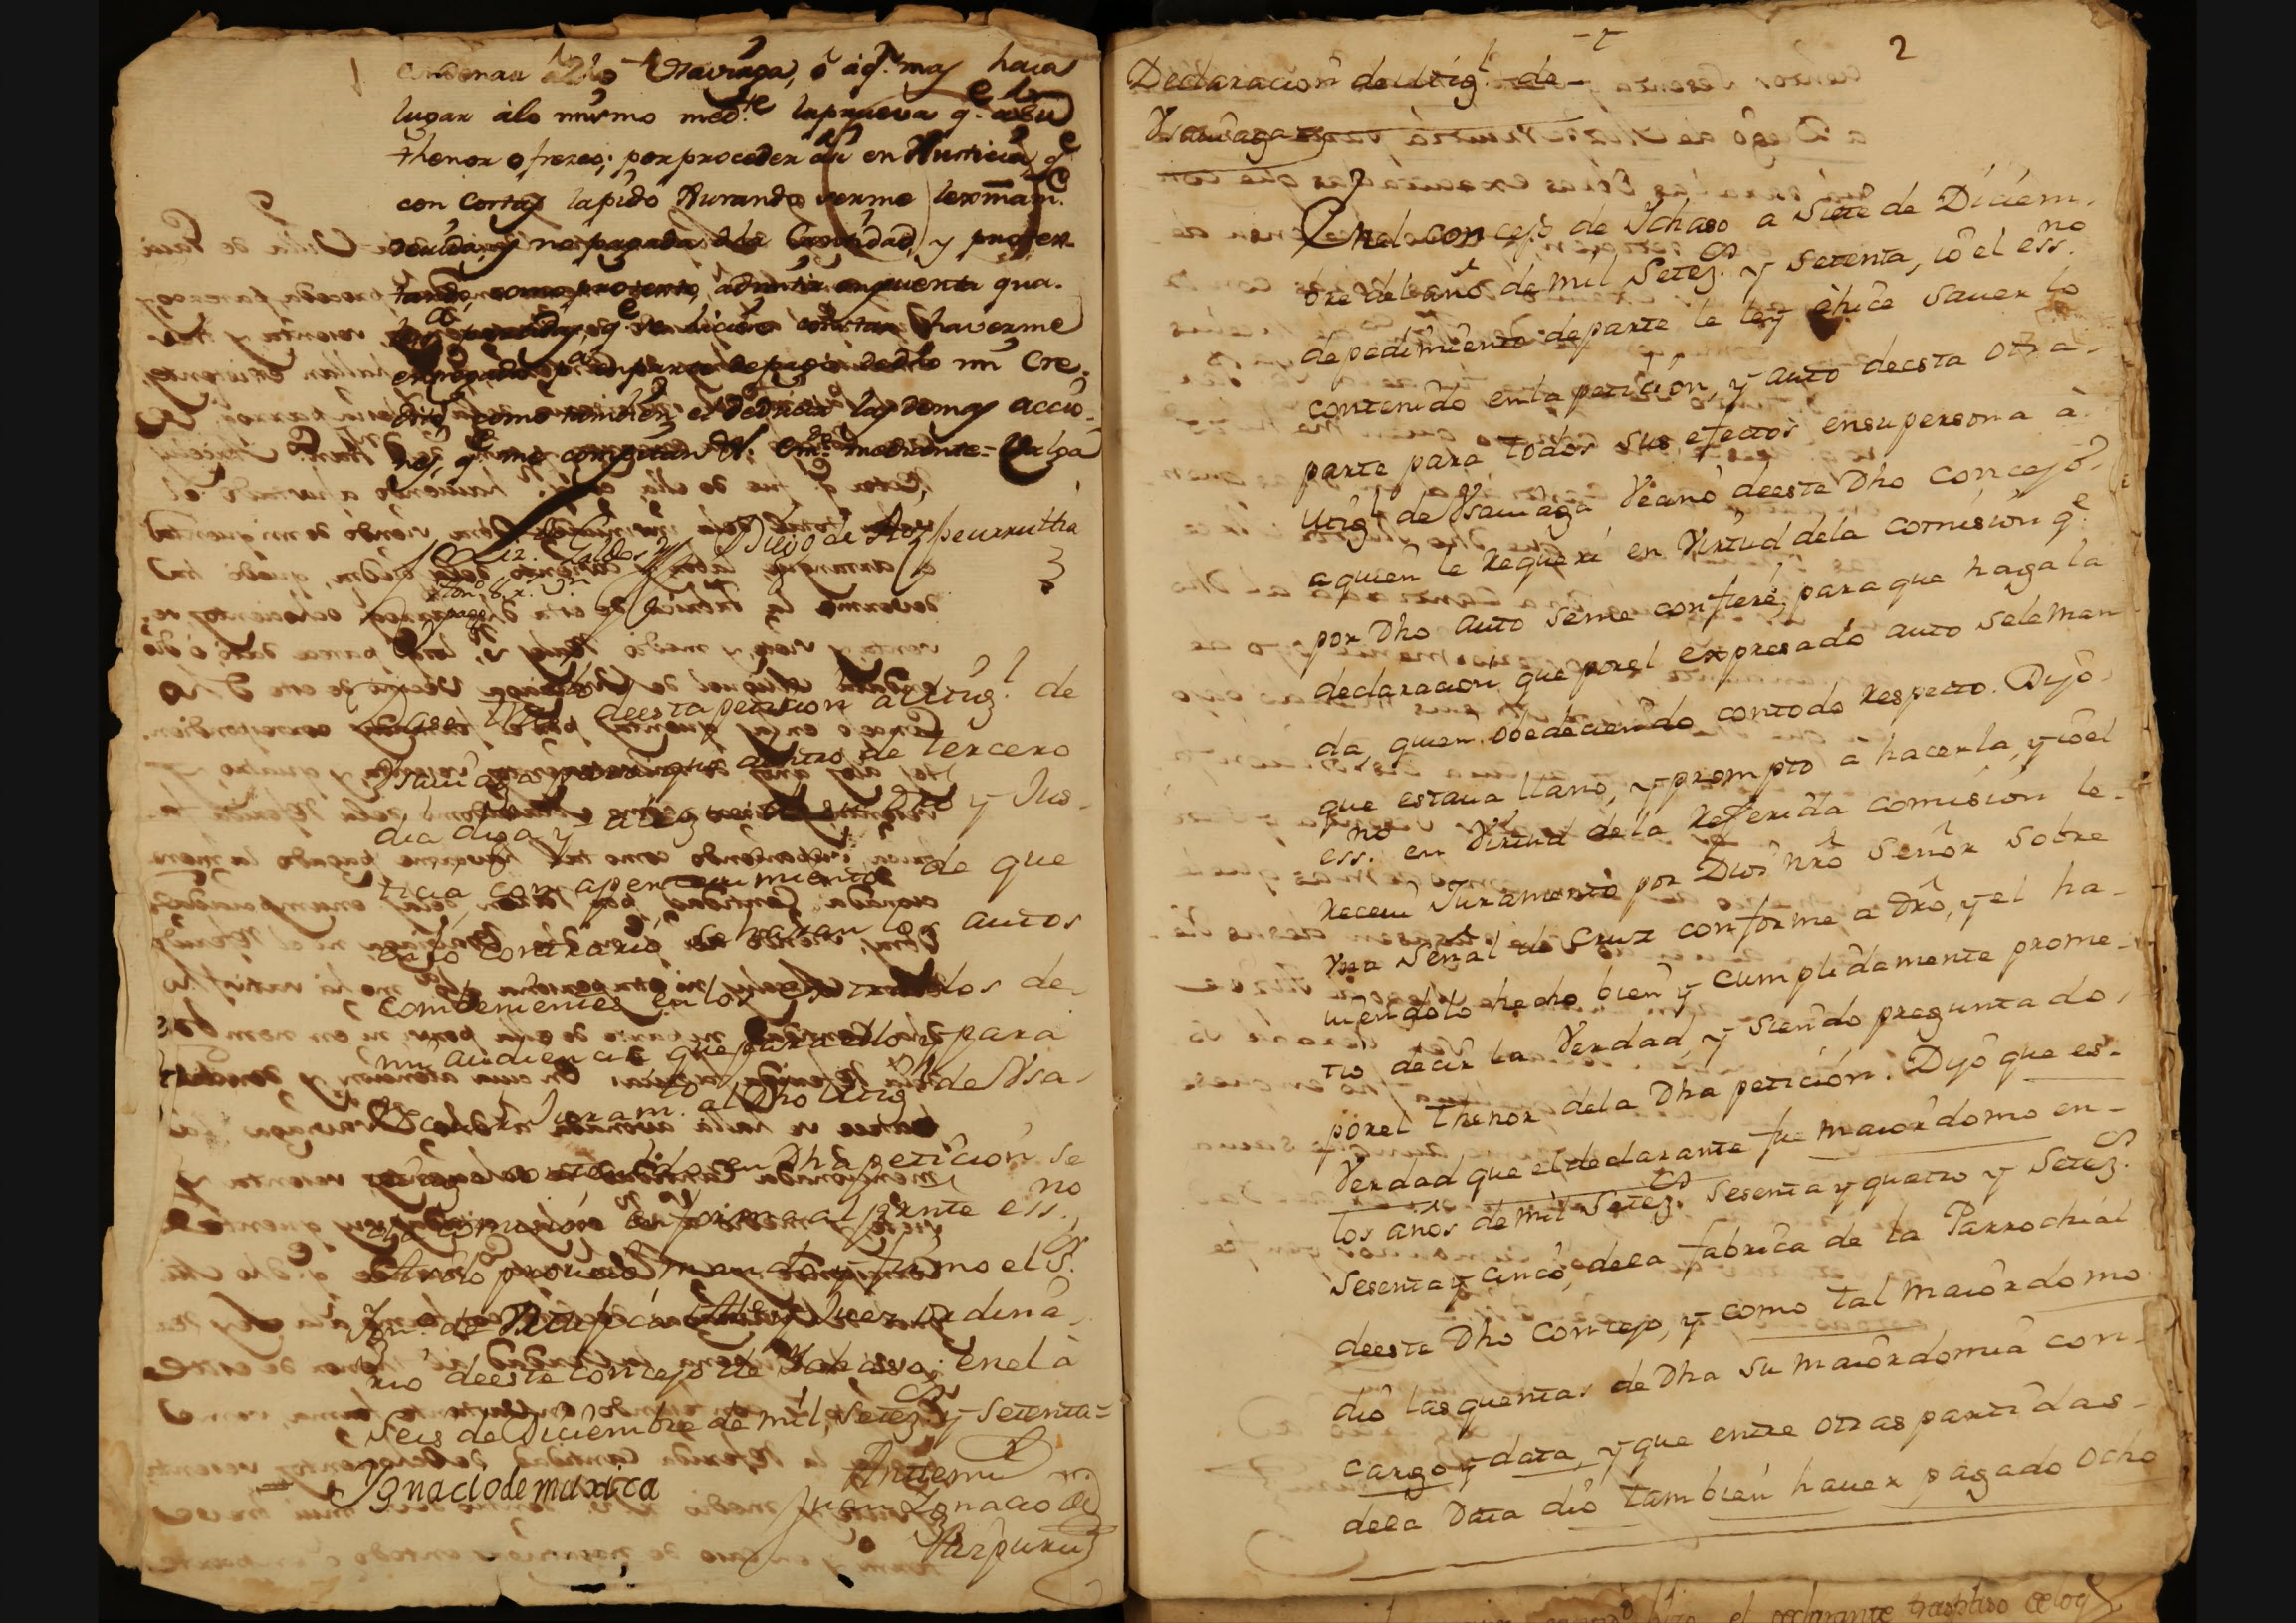 condenar a dho Usauiaga, ô a q.n mas haia
lugar alo mismo med.te la prueva q.e a su
thenor ofrezco; por proceder asi en Justicia, q.e
con costas la pido Jurando serme lexmam.te
devida, y no pagada dha Cantidad, y protes-
tando, como protesto, admitir en quenta qua-
les q.e se hiciere constar haverme
entregado en parte de pago de dho mi Cre-
dito, como tambien el deducir las demas accio-
nes, q.e me competan
Diego de Azpeurrutia
Dase tr.do de esta peticion a Mig.l de
Usauiaga para que dentro de tercero
dia diga y alegue de su Dro y Jus-
ticia, con apercivimiento de que
en lo contrario se haràn los autos
combenientes en los estrados de
mi audiencia que para ello y para
recivir Juram.to al dho Mig.l de Usa-
contenido en Dha peticion se
da comision en forma al press.nte ess.no
Asi lo proveiò mandò y firmo el S.r
Juez ordina-
rio de este concejo de Ychaso; en el à
Seis de Diciembre de mil, Setez.s y Setenta=
Ygnacio de muxica
Antemi
Juan Ygnacio de
2
Declaracion de Mig.l de
Usauiaga
En el concejo de Ychaso a Siete de Diciem-
bre del año de mil Setez.s y Setenta, io el ess.no
de pedimiento de parte le ley è hice saver lo
contenido en la peticion, y auto de esta otra
parte para todos sus efectos en su persona à
Mig.l de Usauiaga Vecino de este Dho concejo
a quien le requeri en Virtud de la comision q.e
por Dho auto se me confiere, para que haga la
declaracion que por el expresado auto se le man
da, quien obedeciendo con todo respecto. Dijo
que estaua llano, y prompto à hacerla, y io el
ess.no en Virtud de la Referida comision le
recivi Juramento por Dios nrô Señor sobre
Una Señal de Cruz conforme a drô, y el ha-
uiendolo hecho bien y cumplidamente prome-
tio decir la Verdad, y siendo preguntado
por el thenor de la Dha peticion. Dijo que es-
Verdad que el declarante fue maiordomo en-
los años de mil Setez.s Sesenta y quatro y Setez.s
Sesenta y cinco, de la fabrica de la Parrochial
de este Dho concejo, y como tal maiordomo
diò las quentas de Dha su maiordomia con-
cargo y data, y que entre otras partidas-
de la Data diò tambien hauer pagado ocho
el declarante traspaso